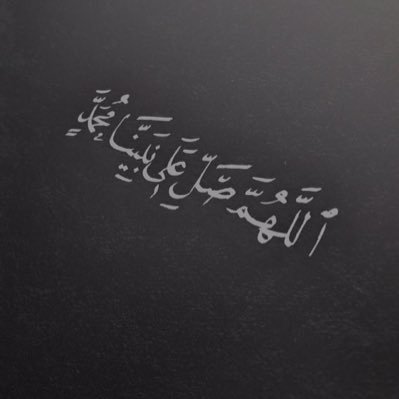 اللَّهُمَّ صَلِّ عَلَى نَبِيِّنَا مُحَمَّدٍ